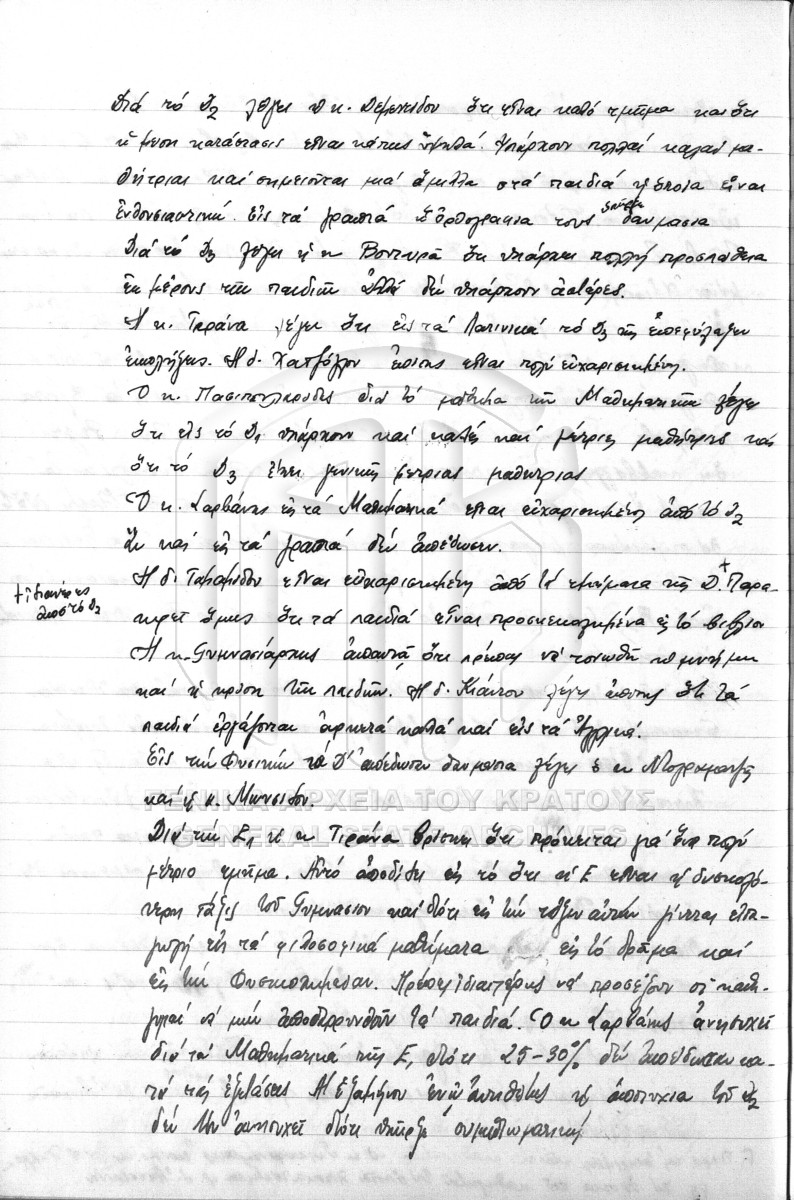 Διά τό Δ2 λέγει ἡ κ. Δεμενίδου ὅτι εἶναι καλό τμῆμα και ὅτι
ἡ μέση κατάστασις εἶναι κάπως ὑψηλά. Ὑπάρχουν πολλαί καλαί μα-
θήτριαι καί σημειοῦται μιά ἅμιλλα στά παιδιά ἡ ὁποία εἶναι
ἐνθουσιαστική. Εἰς τά γραπτά ἡ ὀρθογραφία τους θαυμάσια
Διά τό Δ3 λέγει ἡ κ ὅτι ὑπάρχει πολλή προσπάθεια
ἐκ μέρους τῶν παιδιῶν ἀλλά δέν ὑπάρχουν ἀστέρες.
Ἡ κ. Τιράνα λέγει ὅτι εἰς τά Λατινικά τό Δ3 τῆς ἐπεφύλαξεν
ἐκπλήξεις. Ἡ δ. Χατζόγλου ἐπίσης εἶναι πολύ εὐχαριστημένη.
Ὁ κ. διά τό μάθημα τῶν Μαθηματικῶν λέγει
ὅτι εἰς τό Δ1 ὑπάρχουν καί καλές καί μέτριες μαθήτριες καί
ὅτι τό Δ3 ἔχει γενικῶς μέτριας μαθήτριας
Ὁ κ. Σαρβάνης εἰς τά Μαθηματικά εἶναι εὐχαριστημένος ἀπό τό Δ2
ἄν καί εἰς τά γραπτά δέν ἀπέδωσαν.
Ἡ δ. εἶναι εὐχαριστημένη ἀπό τά τμήματα τῆς Δ.+ Παρα-
+ ἰδιαιτέρως
ἀπό τό Δ2
τηρεῖ ὅμως ὅτι τά παιδιά εἶναι προσκεκολημένα εἰς τό βιβλίον
Ἡ κ. Γυμνασιάρχης ἀπαντᾶ ὅτι πρέπει νά τονωθῇ ἡ μνήμη
καί ἡ κρίση τῶν παιδιῶν. Ἡ δ. Κιάντου λέγει ἐπίσης ὅτι τά
παιδιά ἐργάζονται ἀρκετά καλά καί εἰς τά Ἀγγλικά.
Εἰς τήν Φυσικήν τά Δ' ἀπέδωσαν θαυμάσια λέγει ὁ κ
καί ἡ κ.
Διά τήν Ε1 ἡ κ Τιράνα βρίσκει ὅτι πρόκειται γιά ἕνα πολύ
μέτριο τμῆμα. Αὐτό ἀποδίδει εἰς τό ὅτι ἡ Ε εἶναι ἡ δυσκολό-
τερη τάξις τοῦ Γυμνασίου καί διότι εἰς τήν τάξιν αὐτήν γίνεται εἰσα-
γωγή εἰς τά φιλοσοφικά μαθήματα εἰς τό δρᾶμα καί
εἰς τήν Φυσικοχημείαν. Πρέπει ἰδιαιτέρως νά προσέξουν οἱ καθη-
γηταί νά μήν ἀποθαρρυνθοῦν τά παιδιά. Ὁ κ Σαρβάνης ἀνησυχεῖ
διά τά Μαθηματικά τῆς Ε, διότι 25-30% δέν ἀπέδωσαν κα-
τά τάς ἐξετάσεις Α' ἑξαμήνου ἐνῷ ἀντιθέτως ἡ ἀποτυχία τοῦ Δ2
δέν τόν ἀνησυχεῖ διότι ὑπῆρξε συμπτωματική.
ΓΕΝΙΚΑ ΑΡΧΕΙΑ ΤΟΥ ΚΡΑΤΟΥΣ
GENERAL STATE ARCHIVES